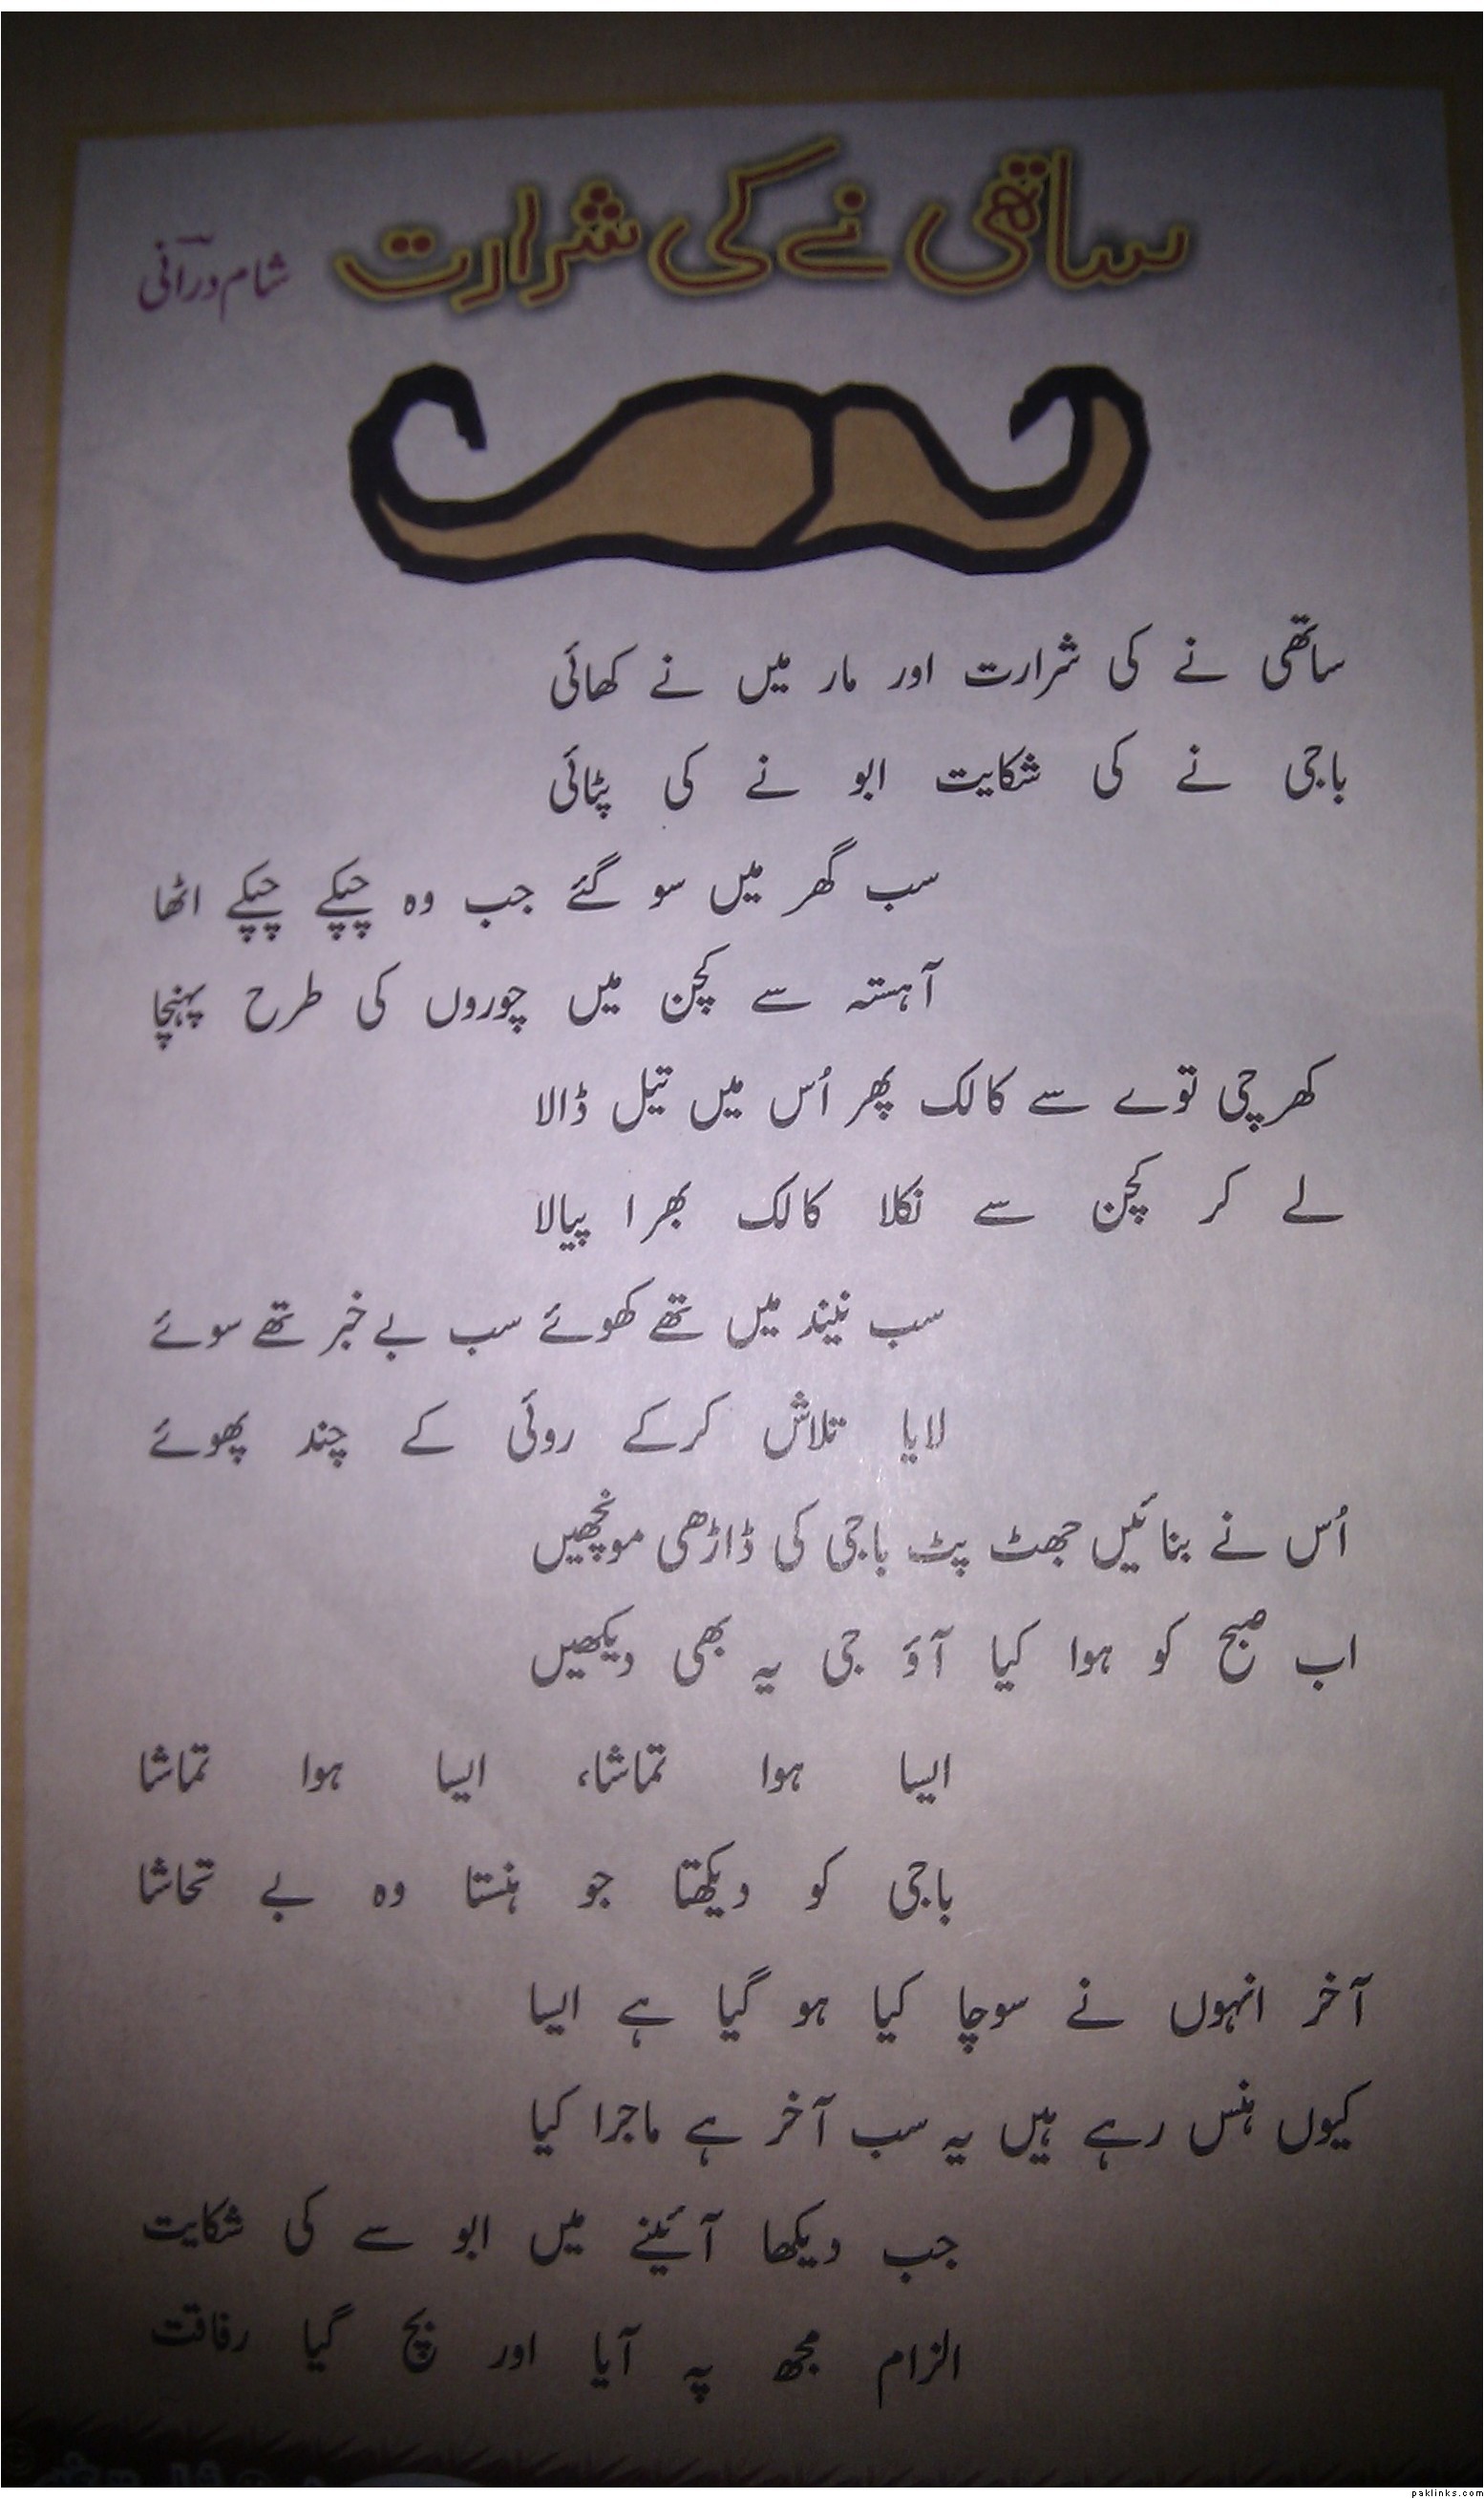 ساتھی نے کی شرارت
شام درآنی
ساتھی نے کی شرارت اور مار میں نے کھائی
باجی نے کی شکایت ابو نے کی پٹائی
سب گھر میں سو گئے جب وہ چپکے چپکے اٹھا
آہستہ سے کچن میں چوروں کی طرح پہنچا
کھرچی توے سے کالک پھر اُس میں تیل ڈالا
لے کر کچن سے نکلا کالک بھرا پیالا
سب نیند میں تھے کھوئے سب بے خبر تھے سوئے
لایا تلاش کرکے روئی کے چند پھوئے
اُس نے بنائیں جھٹ پٹ باجی کی ڈاڑھی مونچھیں
اب صبح کو ہوا کیا آؤ جی یہ بھی دیکھیں
ایسا ہوا تماشا، ایسا ہوا تماشا
باجی کو دیکھتا جو ہنستا وہ بے تحاشا
آخر انہوں نے سوچا کیا ہو گیا ہے ایسا
کیوں ہنس رہے ہیں یہ سب آخر ہے ماجرا کیا
جب دیکھا آئینے میں ابو سے کی شکایت
الزام مجھ پہ آیا اور بچ گیا رفاقت
paklinks.com